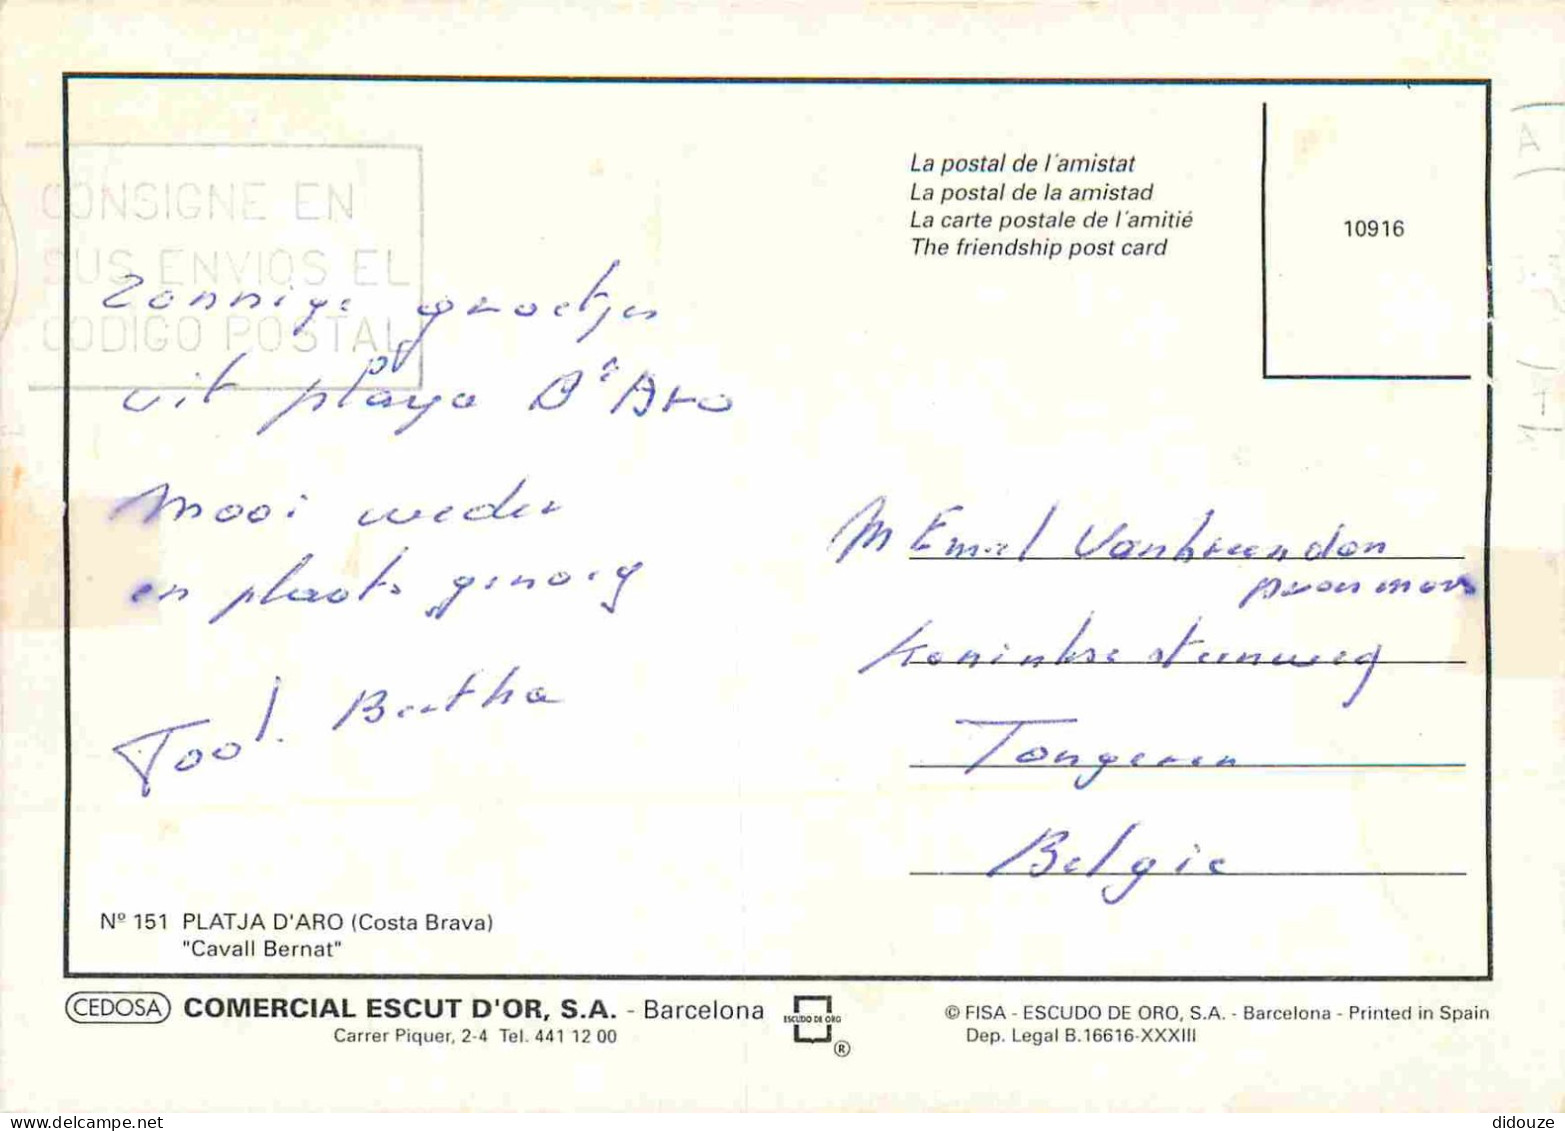 CONSIGNE EN
SUS ENVIOS EL
CODIGO POSTAL
Zonnige groetjes
uit playa D'Aro
Mooi weder
en plaats genoeg
Bertha
La postal de l'amistat
La postal de la amistad
La carte postale de l'amitié
The friendship post card
10916
M Emiel
Tongeren
Belgie
Nº 151 PLATJA D'ARO (Costa Brava)
"Cavall Bernat"
CEDOSA COMERCIAL ESCUT D'OR, S.A. - Barcelona
Carrer Piquer, 2-4 Tel. 441 12 00
ESCUDO DE ORO
®
© FISA - ESCUDO DE ORO, S.A. - Barcelona - Printed in Spain
Dep. Legal B.16616-XXXIII
didouze